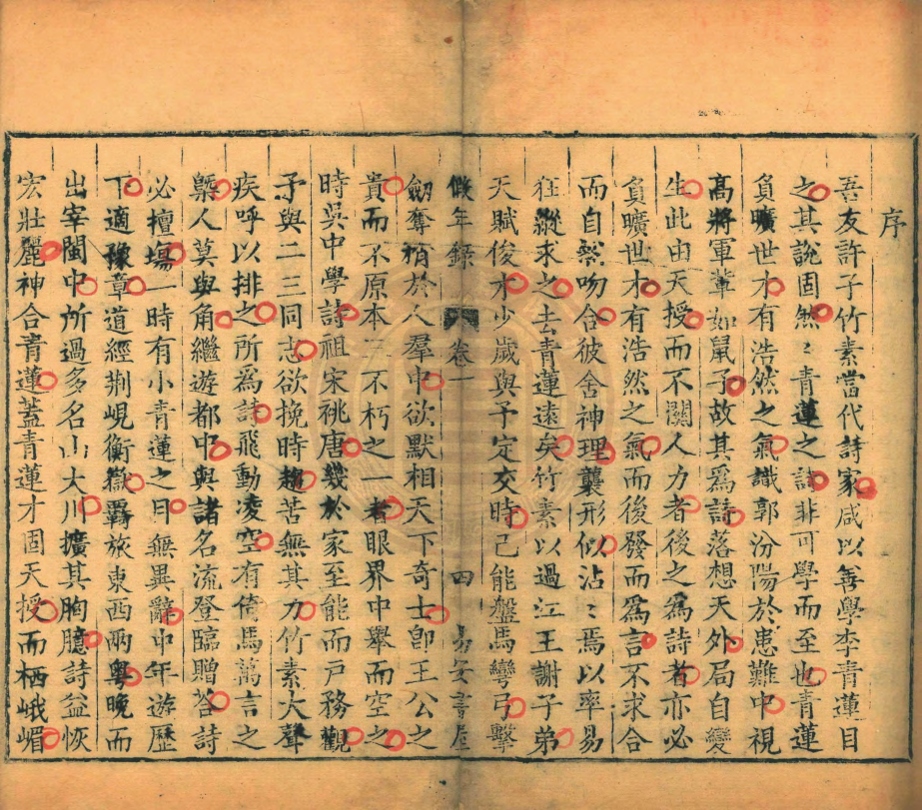 序
吾友許子竹素當代詩家咸以善學李青蓮目
之其說固然〻青蓮之詩非可學而至也青蓮
負曠世才有浩然之氣識郭汾陽於患難中視
高將軍輩如鼠子故其爲詩落想天外局自變
生此由天授而不關人力者後之爲詩者亦必
負曠世才有浩然之氣而後發而爲言不求合
而自泯吻合彼舍神理襲形似沾〻焉以率易
狂縱求之去青蓮遠矣竹素以過江王謝子弟
天賦俊才少歲與予定交時已能盤馬彎弓擊
劒奪槊於人羣中欲默相天下奇士卽王公之
貴而不原本三不朽之一者眼界中舉而空之
時吳中學詩祖宋祧唐幾於家至能而戸務觀
予與二三同志欲挽時趨苦無其力竹素大聲
疾呼以排之所爲詩飛動凌空有倚馬萬言之
槩人莫與角繼遊都中與諸名流登臨贈答詩
必擅塲一時有小青蓮之目無異辭中年遊歷
下適豫章道經荆峴衡嶽羇旅東西兩粵晚而
出宰閩中所過多名山大川擴其胸臆詩益恢
宏壯麗神合青蓮蓋青蓮才固天授而栖峨嵋
倣年錄
卷一
四
易安書屋